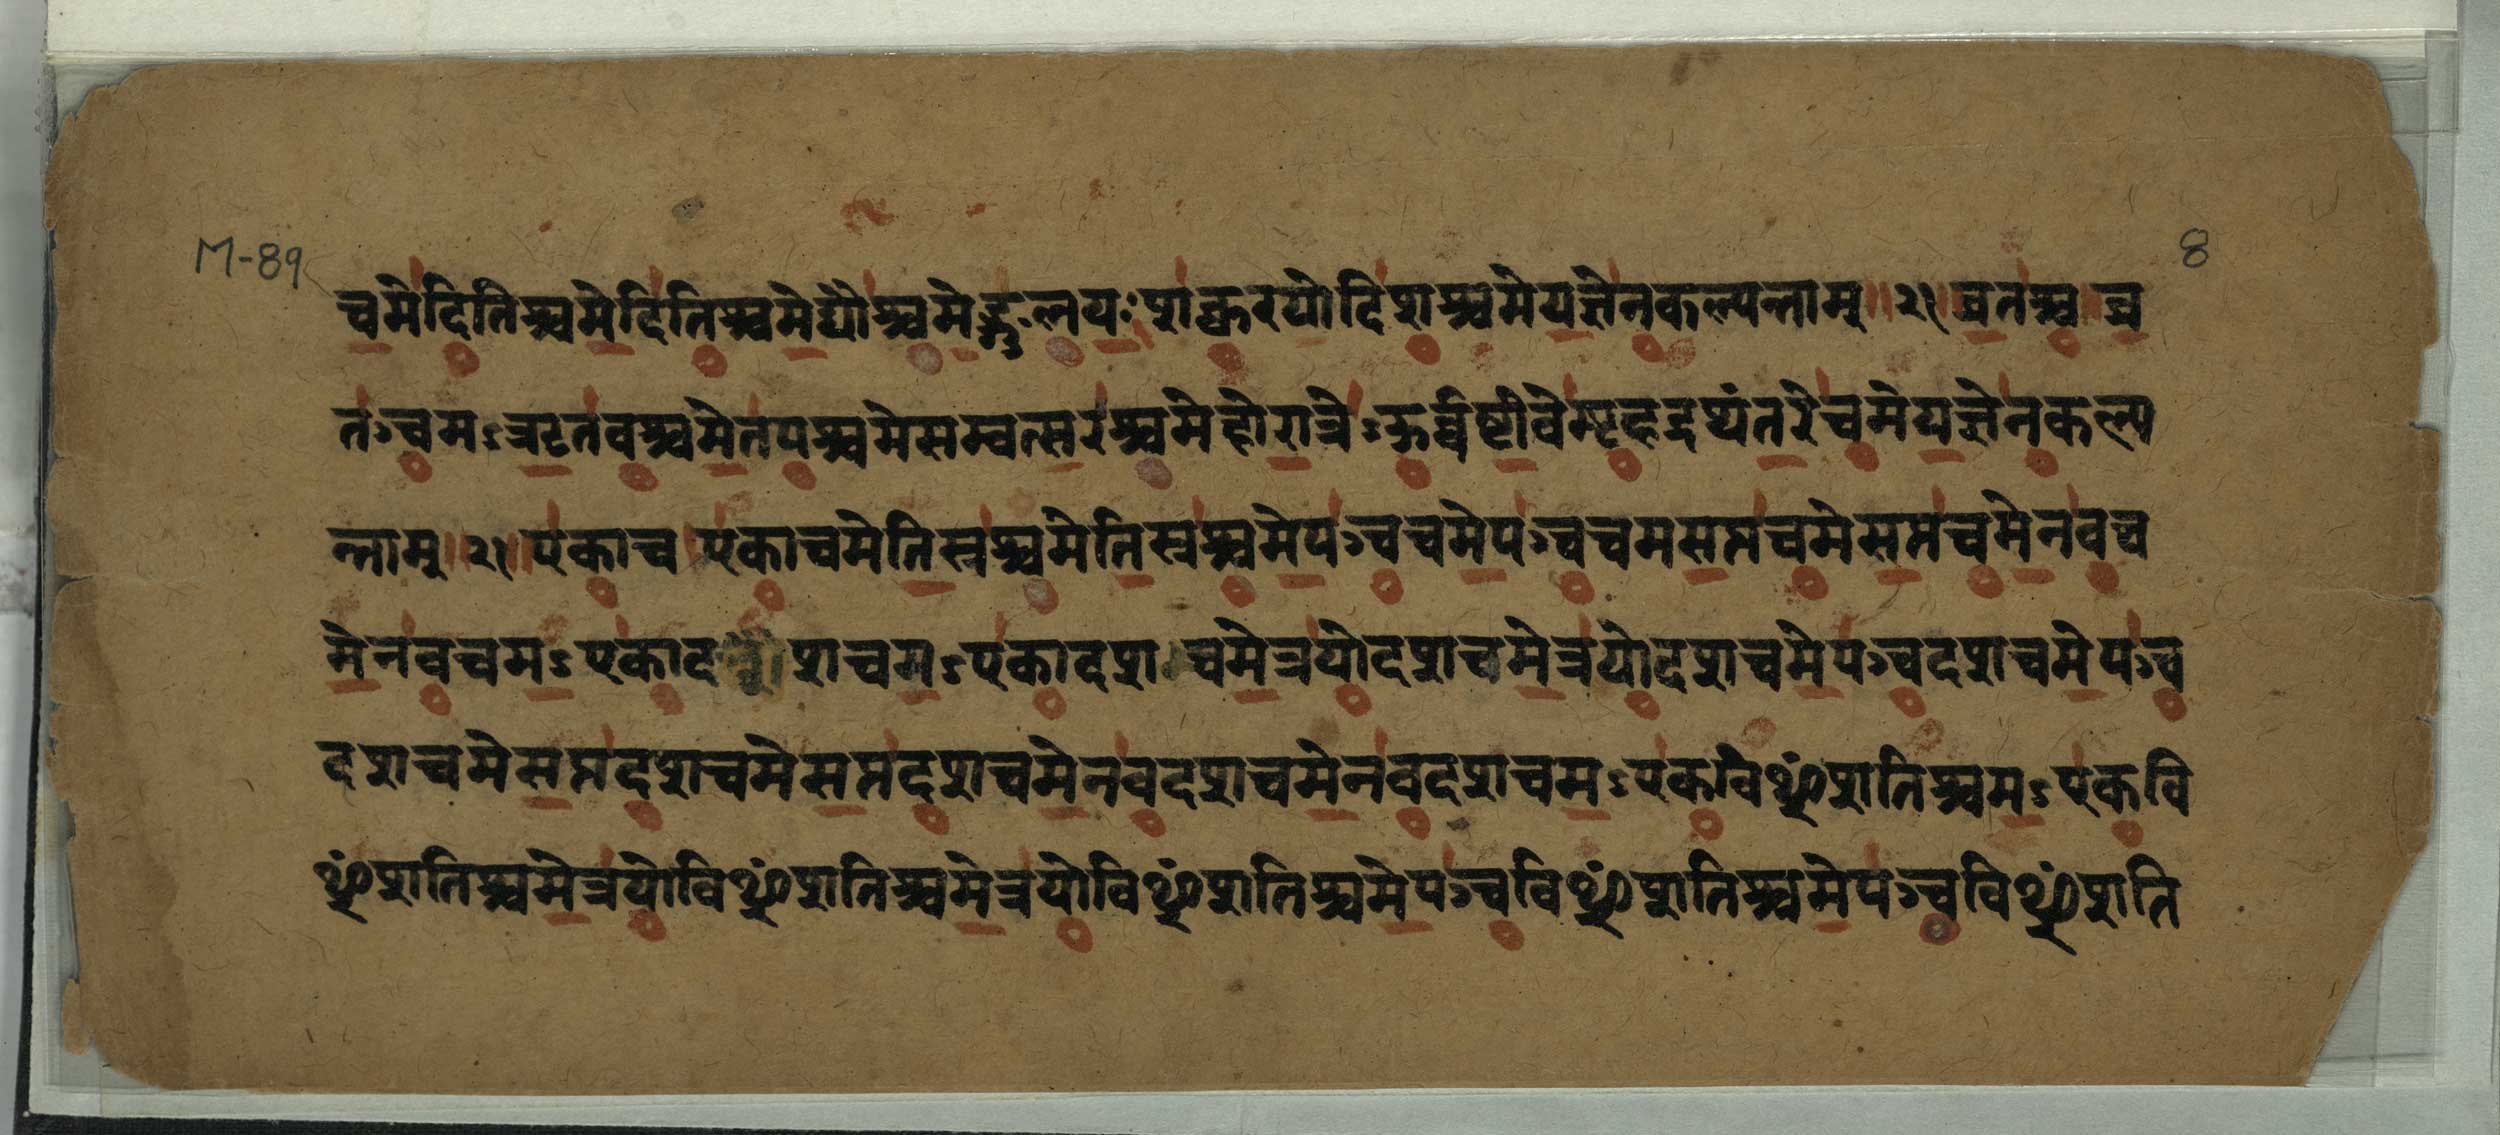 M-89
8
चमेदितिश्चमेदितिश्चमेद्यौश्चमेङ्गुलयःशक्वरयोदिशश्चमेयज्ञेनकल्पन्ताम् ॥ २२ ॥ व्रतञ्च व्र
तञ्चमऽऋतवश्चमेतपश्चमेसम्वत्सरश्चमेहोरात्रेऽऊर्वष्ठीवेबृहद्रथंतरेचमेयज्ञेनकल्प
न्ताम् ॥ २३ ॥ एकाच एकाचमेतिस्रश्चमेतिस्रश्चमेपञ्चचमेपञ्चचमसप्तचमेसप्तचमेनवच
मेनवचमऽएकादशचमऽएकादशचमेत्रयोदशचमेत्रयोदशचमेपञ्चदशचमेपञ्च
दशचमेसप्तदशचमेसप्तदशचमेनवदशचमेनवदशचमऽएकविꣳशतिश्चमऽएकवि
ꣳशतिश्चमेत्रयोविꣳशतिश्चमेत्रयोविꣳशतिश्चमेपञ्चविꣳशतिश्चमेपञ्चविꣳशति